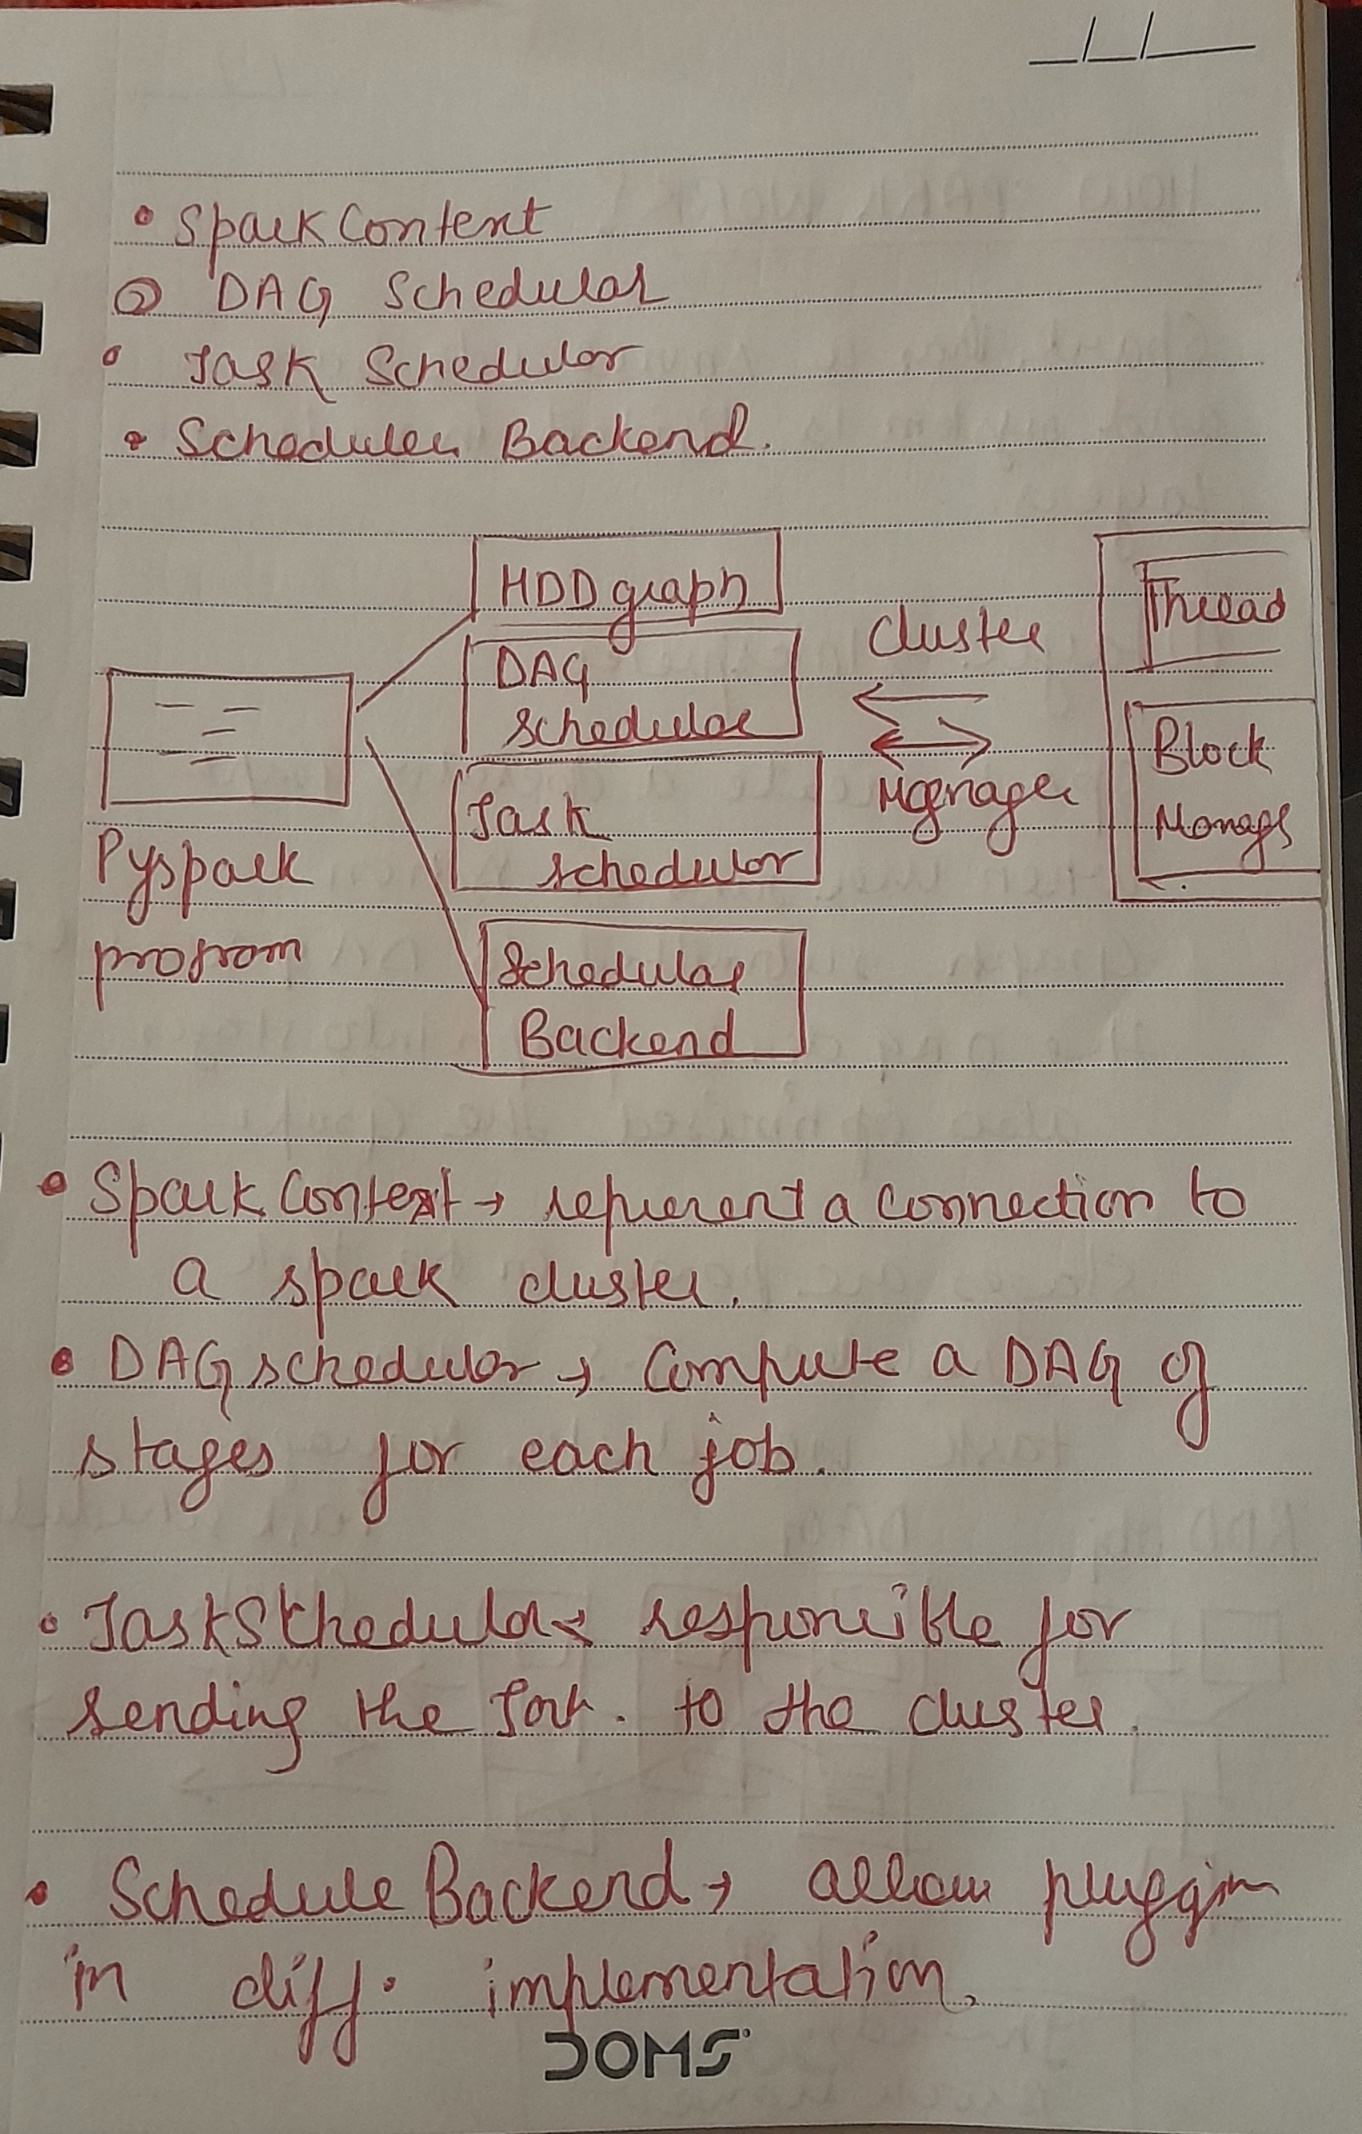 • Spark Content
• DAG Schedular
• Task Schedulor
• Scheduler Backend.
HDD graph
DAG
schedular
Task
schedulor
Schedular
Backend
Pyspark
program
cluster
Manager
Thread
Block
Manags
• Spark Context → represent a connection to
a spark cluster.
• DAG schedulor → Compute a DAG of
stages for each job.
• Task Schedular → responsible for
sending the to the cluster.
• Schedule Backend → allow pluggin
in diff. implementation.
DOMS